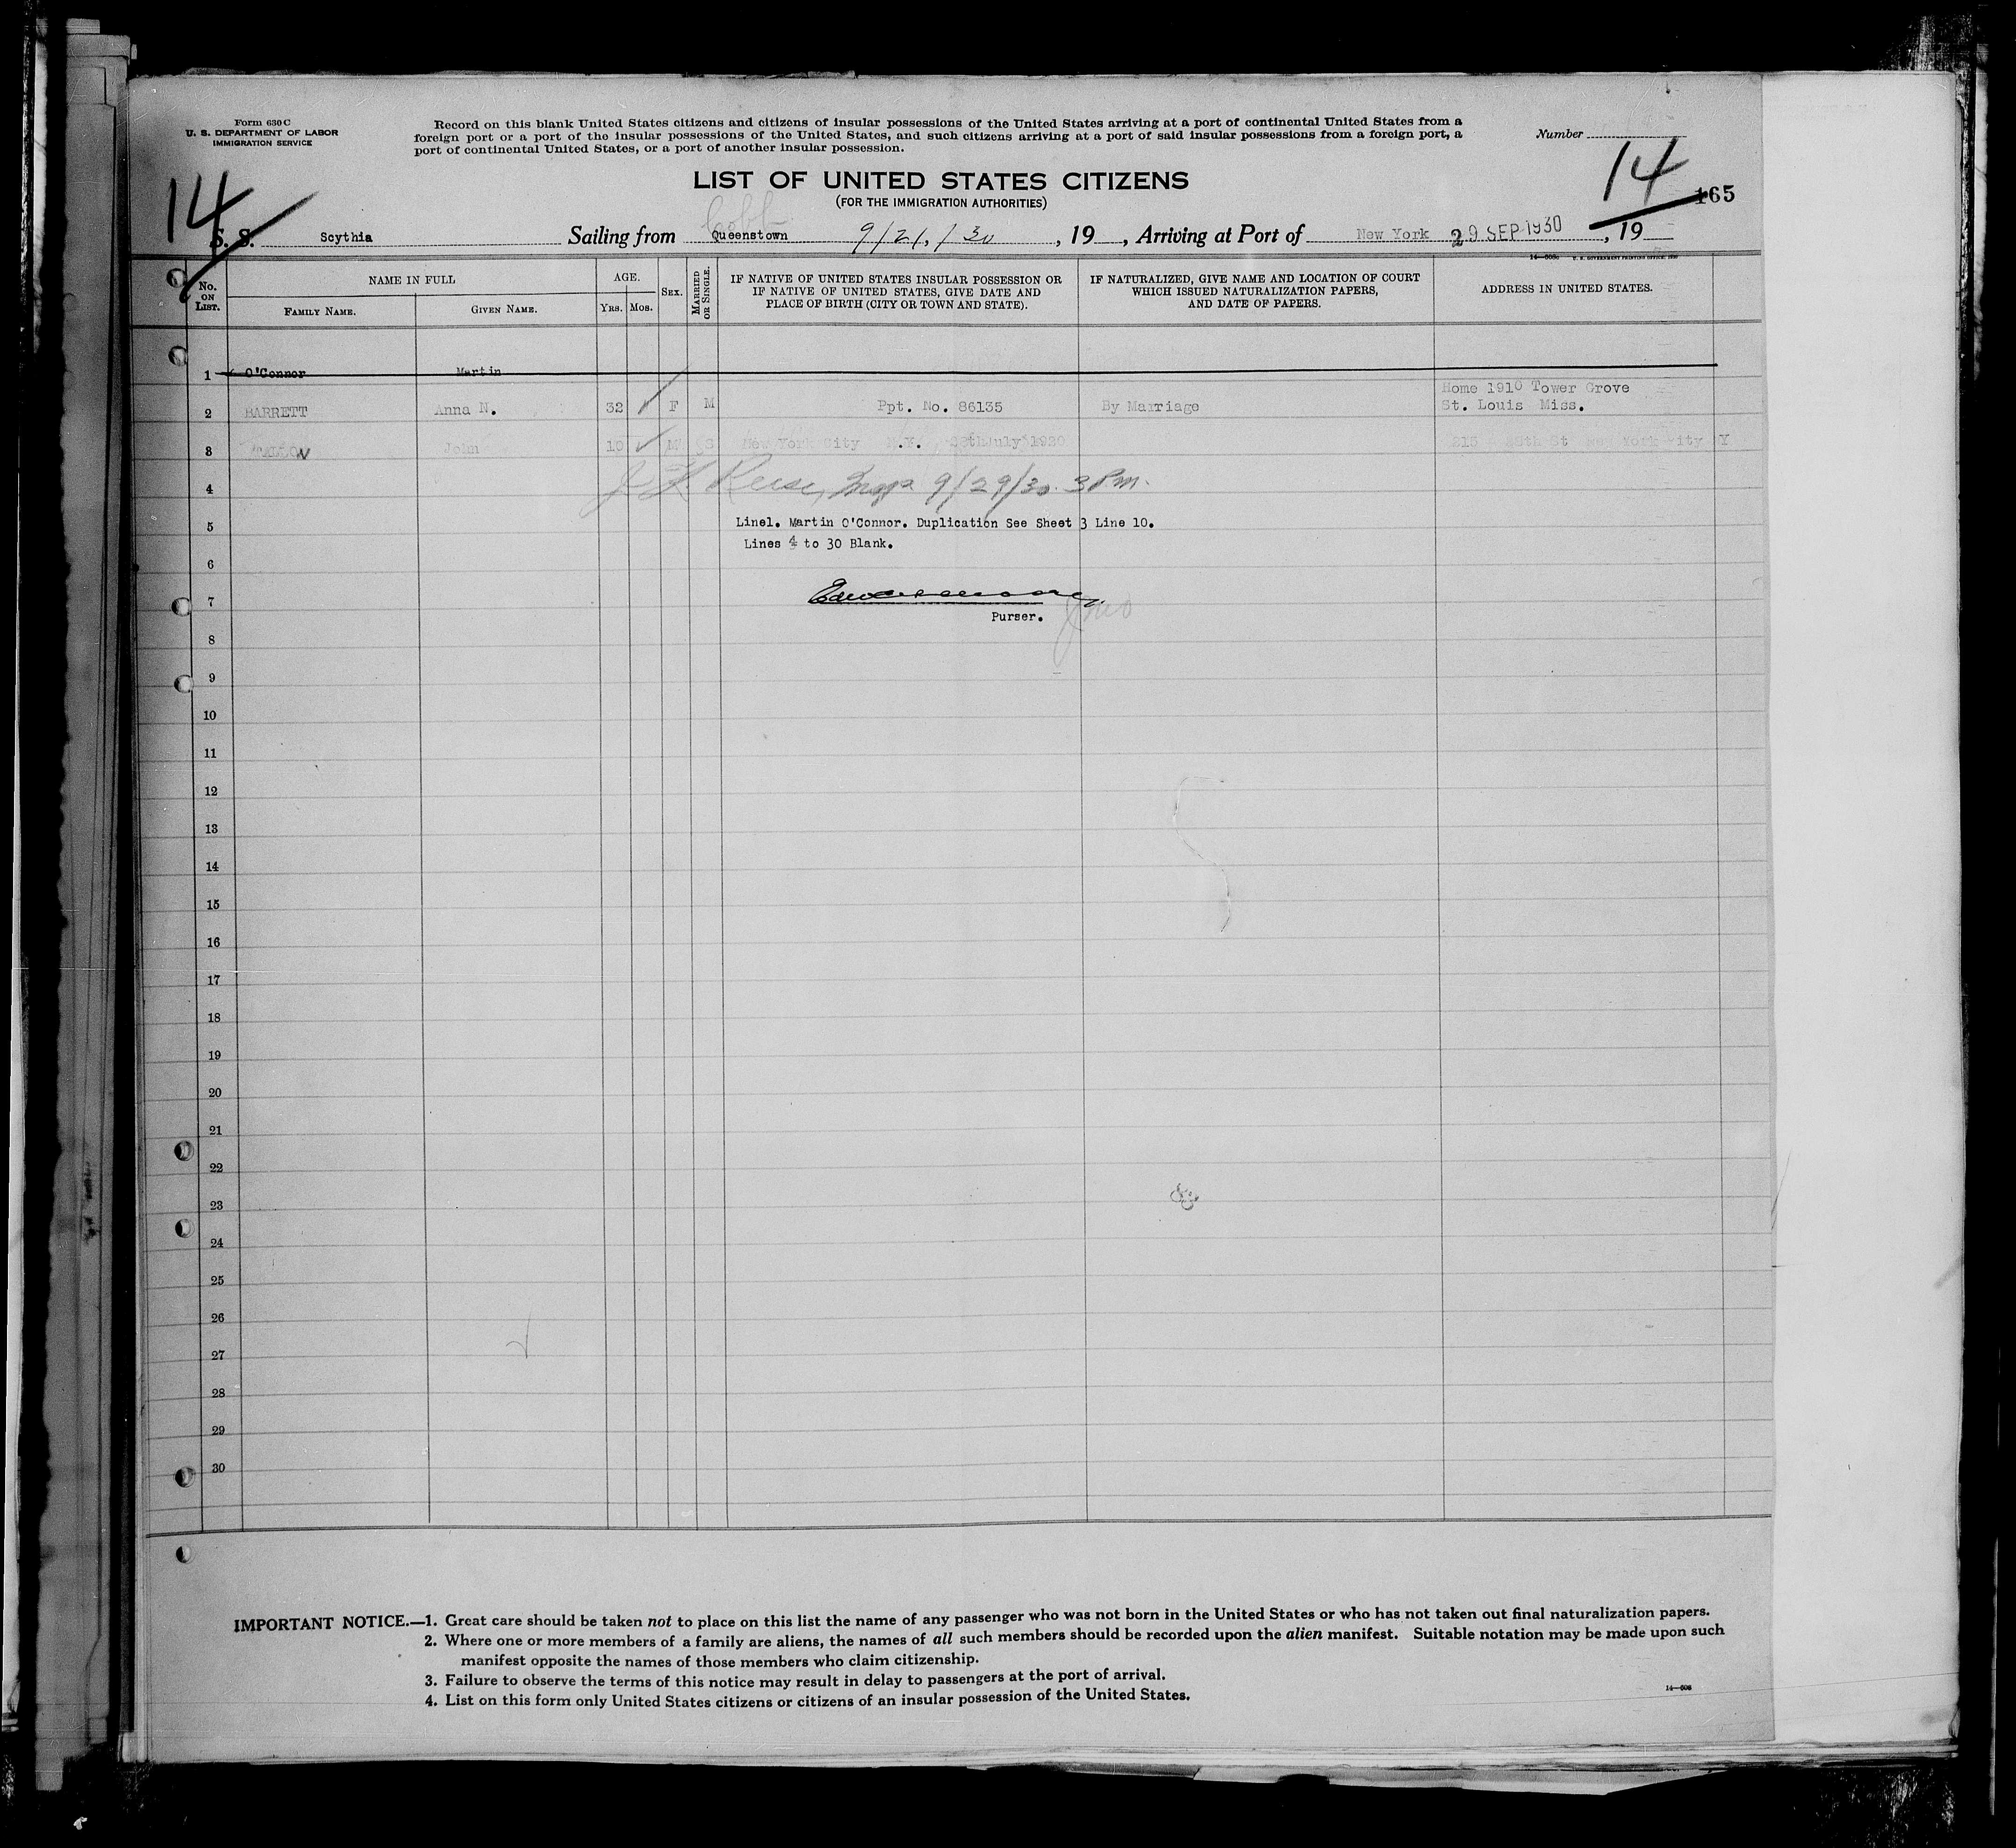 Form 630 C
U. S. DEPARTMENT OF LABOR
IMMIGRATION SERVICE
Record on this blank United States citizens and citizens of insular possessions of the United States arriving at a port of continental United States from a
foreign port or a port of the insular possessions of the United States, and such citizens arriving at a port of said insular possessions from a foreign port, a
port of continental United States, or a port of another insular possession.
Number
14
14
165
LIST OF UNITED STATES CITIZENS
(FOR THE IMMIGRATION AUTHORITIES)
Cobh
S. S. Scythia Sailing from Queenstown 9/21/30, 19 , Arriving at Port of New York 29 SEP 1930, 19
No. ON LIST.
NAME IN FULL
FAMILY NAME.
GIVEN NAME.
AGE.
YRS. MOS.
SEX.
MARRIED OR SINGLE.
IF NATIVE OF UNITED STATES INSULAR POSSESSION OR
IF NATIVE OF UNITED STATES, GIVE DATE AND
PLACE OF BIRTH (CITY OR TOWN AND STATE).
IF NATURALIZED, GIVE NAME AND LOCATION OF COURT
WHICH ISSUED NATURALIZATION PAPERS,
AND DATE OF PAPERS.
ADDRESS IN UNITED STATES.
1 O'Connor Martin
Home 1910 Tower Grove
2 BARRETT Anna N. 32 F M Ppt. No. 86135 By Marriage St. Louis Miss.
3 John 10 M S New York City N.Y. July 1920 215 St New York City Y
4 9/29/30. 3 Pm.
5 Line1. Martin O'Connor. Duplication See Sheet 3 Line 10.
Lines 4 to 30 Blank.
6
7
Purser.
8
9
10
11
12
13
14
15
16
17
18
19
20
21
22
23
24
25
26
27
28
29
30
IMPORTANT NOTICE.—1. Great care should be taken not to place on this list the name of any passenger who was not born in the United States or who has not taken out final naturalization papers.
2. Where one or more members of a family are aliens, the names of all such members should be recorded upon the alien manifest. Suitable notation may be made upon such
manifest opposite the names of those members who claim citizenship.
3. Failure to observe the terms of this notice may result in delay to passengers at the port of arrival.
4. List on this form only United States citizens or citizens of an insular possession of the United States.
14—608